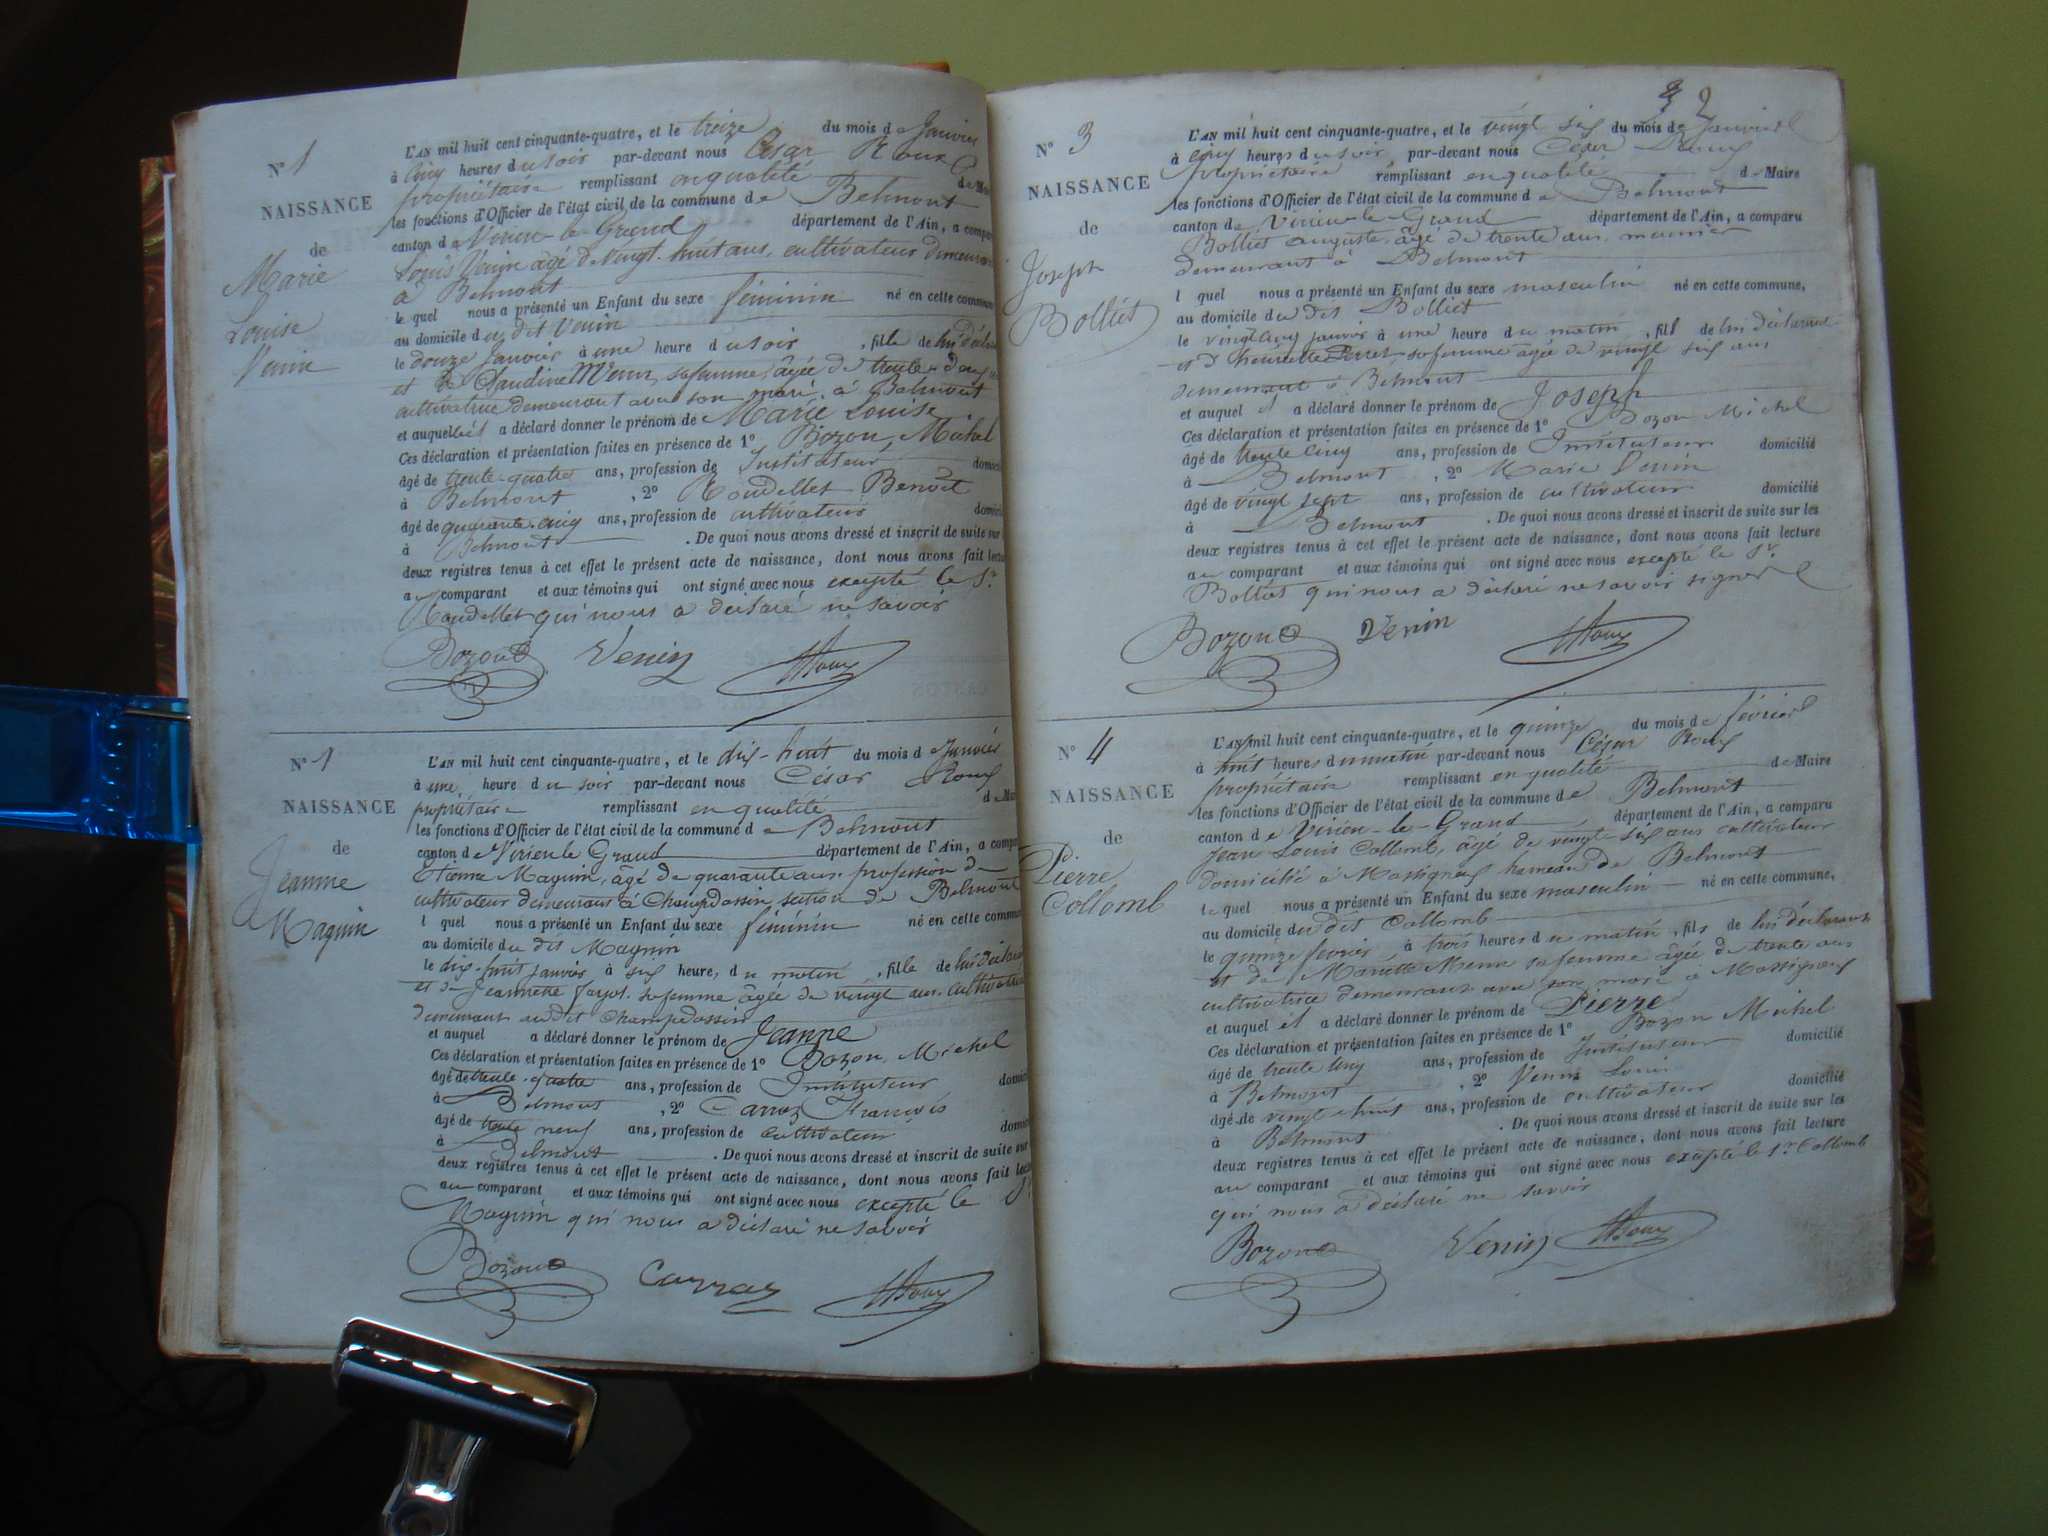 N° 1
NAISSANCE
de
Marie
Louise
Venin
L'AN mil huit cent cinquante-quatre, et le treize du mois de Janvier
à cinq heures du soir par-devant nous César Roux
propriétaire remplissant en qualité de Mai
les fonctions d'Officier de l'état civil de la commune de Belmont
canton de Virieu-le-Grand département de l'Ain, a compar
Louis Venin âgé de vingt-huit ans, cultivateur demeurant
à Belmont
le quel nous a présenté un Enfant du sexe féminin né en cette commune
au domicile du dit Venin
le douze Janvier à une heure du soir, fille de lui déclarant
et de Claudine sa femme, âgée de trente-deux ans
cultivatrice demeurant avec son mari à Belmont
et auquel a déclaré donner le prénom de Marie Louise
Ces déclaration et présentation faites en présence de 1° Bozon, Michel
âgé de trente-quatre ans, profession de Instituteur domici
à Belmont, 2° Roudellet Benoît
âgé de quarante-cinq ans, profession de cultivateur domici
à Belmont. De quoi nous avons dressé et inscrit de suite sur
deux registres tenus à cet effet le présent acte de naissance, dont nous avons fait lectu
au comparant et aux témoins qui ont signé avec nous excepté le Sr
Roudellet qui nous a déclaré ne savoir
Bozon Venin Roux
N° 1
NAISSANCE
de
Jeanne
Magnin
L'AN mil huit cent cinquante-quatre, et le dix-huit du mois de Janvier
à une heure du soir par-devant nous César Roux
propriétaire remplissant en qualité de Mai
les fonctions d'Officier de l'état civil de la commune de Belmont
canton de Virieu le Grand département de l'Ain, a compar
Etienne Magnin, âgé de quarante ans profession de
cultivateur demeurant à Champdossin section de Belmont
l quel nous a présenté un Enfant du sexe féminin né en cette commun
au domicile du dit Magnin
le dix-huit janvier à six heure, du matin, fille de lui déclarant
et de Jeannette Fayot sa femme âgée de vingt ans cultivatrice
demeurant au dit Champdossin
et auquel a déclaré donner le prénom de Jeanne
Ces déclaration et présentation faites en présence de 1° Bozon, Michel
âgé de trente-quatre ans, profession de Instituteur domici
à Belmont, 2° Carraz François
âgé de trente neuf ans, profession de cultivateur domici
à Belmont. De quoi nous avons dressé et inscrit de suite sur
deux registres tenus à cet effet le présent acte de naissance, dont nous avons fait lec
au comparant et aux témoins qui ont signé avec nous excepté le Sr
Magnin qui nous a déclaré ne savoir
Bozon Carraz Roux
2
N° 3
NAISSANCE
de
Joseph
Bolliet
L'AN mil huit cent cinquante-quatre, et le vingt six du mois de Janvier
à cinq heures du soir, par-devant nous César Roux
propriétaire remplissant en qualité de Maire
les fonctions d'Officier de l'état civil de la commune de Belmont
canton de Virieu-le-Grand département de l'Ain, a comparu
Bolliet auguste, âgé de trente ans, meunier
demeurant à Belmont
l quel nous a présenté un Enfant du sexe masculin né en cette commune,
au domicile du dit Bolliet
le vingt cinq janvier à une heure du matin, fils de lui déclarant
et d'henriette sa femme âgée de vingt six ans
demeurant à Belmont
et auquel il a déclaré donner le prénom de Joseph
Ces déclaration et présentation faites en présence de 1° Bozon Michel
âgé de trente cinq ans, profession de Instituteur domicilié
à Belmont, 2° Marie Venin
âgé de vingt sept ans, profession de cultivateur domicilié
à Belmont. De quoi nous avons dressé et inscrit de suite sur les
deux registres tenus à cet effet le présent acte de naissance, dont nous avons fait lecture
au comparant et aux témoins qui ont signé avec nous excepté le Sr.
Bolliet qui nous a déclaré ne savoir signer
Bozon Venin Roux
N° 4
NAISSANCE
de
Pierre
Collomb
L'AN mil huit cent cinquante-quatre, et le quinze du mois de février
à huit heures du matin par-devant nous César Roux
propriétaire remplissant en qualité de Maire
les fonctions d'Officier de l'état civil de la commune de Belmont
canton de Virieu-le-Grand, département de l'Ain, a comparu
Jean Louis Collomb, âgé de vingt-six ans cultivateur
domicilié à Massignieu hameau de Belmont
le quel nous a présenté un Enfant du sexe masculin né en cette commune,
au domicile du dit Collomb
le quinze fevrier à trois heures du matin, fils de lui déclarant
et de Mariette sa femme âgée de trente ans
cultivatrice demeurant avec son mari à Massignieu
et auquel il a déclaré donner le prénom de Pierre
Ces déclaration et présentation faites en présence de 1° Bozon Michel
âgé de trente cinq ans, profession de Instituteur domicilié
à Belmont, 2° Venin Louis
âgé de vingt huit ans, profession de cultivateur domicilié
à Belmont. De quoi nous avons dressé et inscrit de suite sur les
deux registres tenus à cet effet le présent acte de naissance, dont nous avons fait lecture
au comparant et aux témoins qui ont signé avec nous excepté le Sr Collomb
qui nous a déclaré ne savoir
Bozon Venin Roux